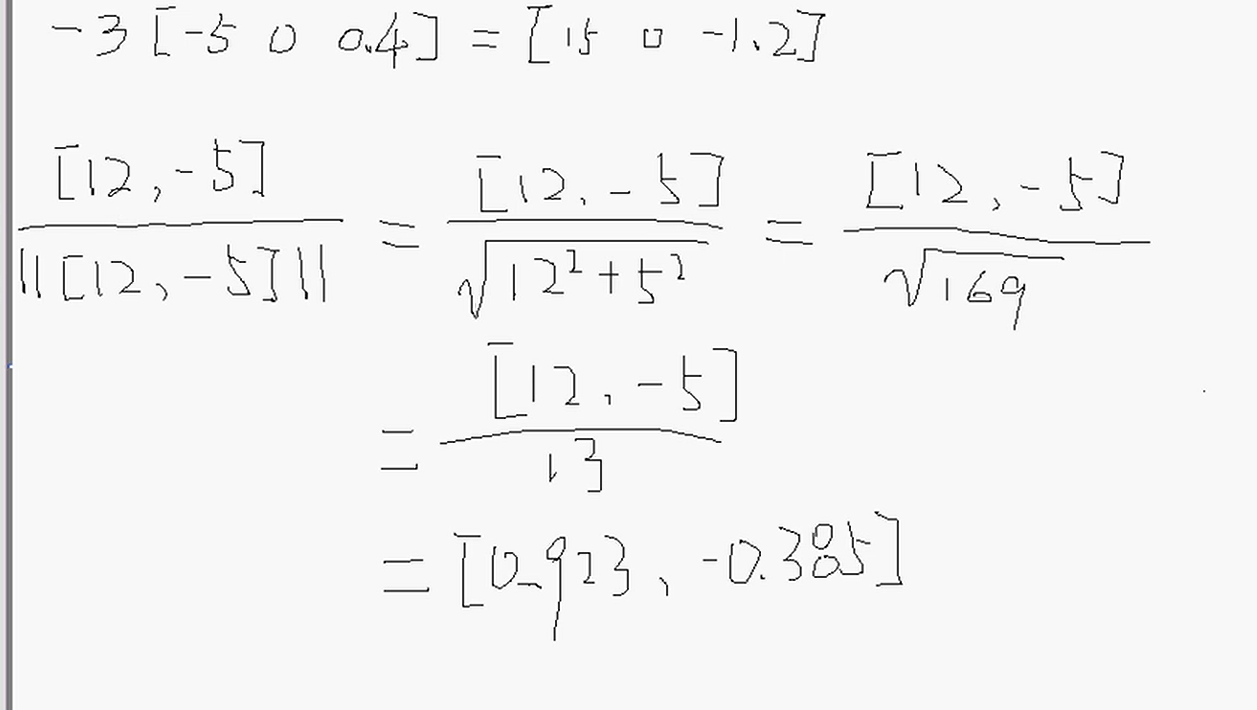 -3 [-5 0 0.4] = [15 0 -1.2]
[12, -5] / ||[12, -5]|| = [12, -5] / √(12² + 5²) = [12, -5] / √169
= [12, -5] / 13
= [0.923, -0.385]